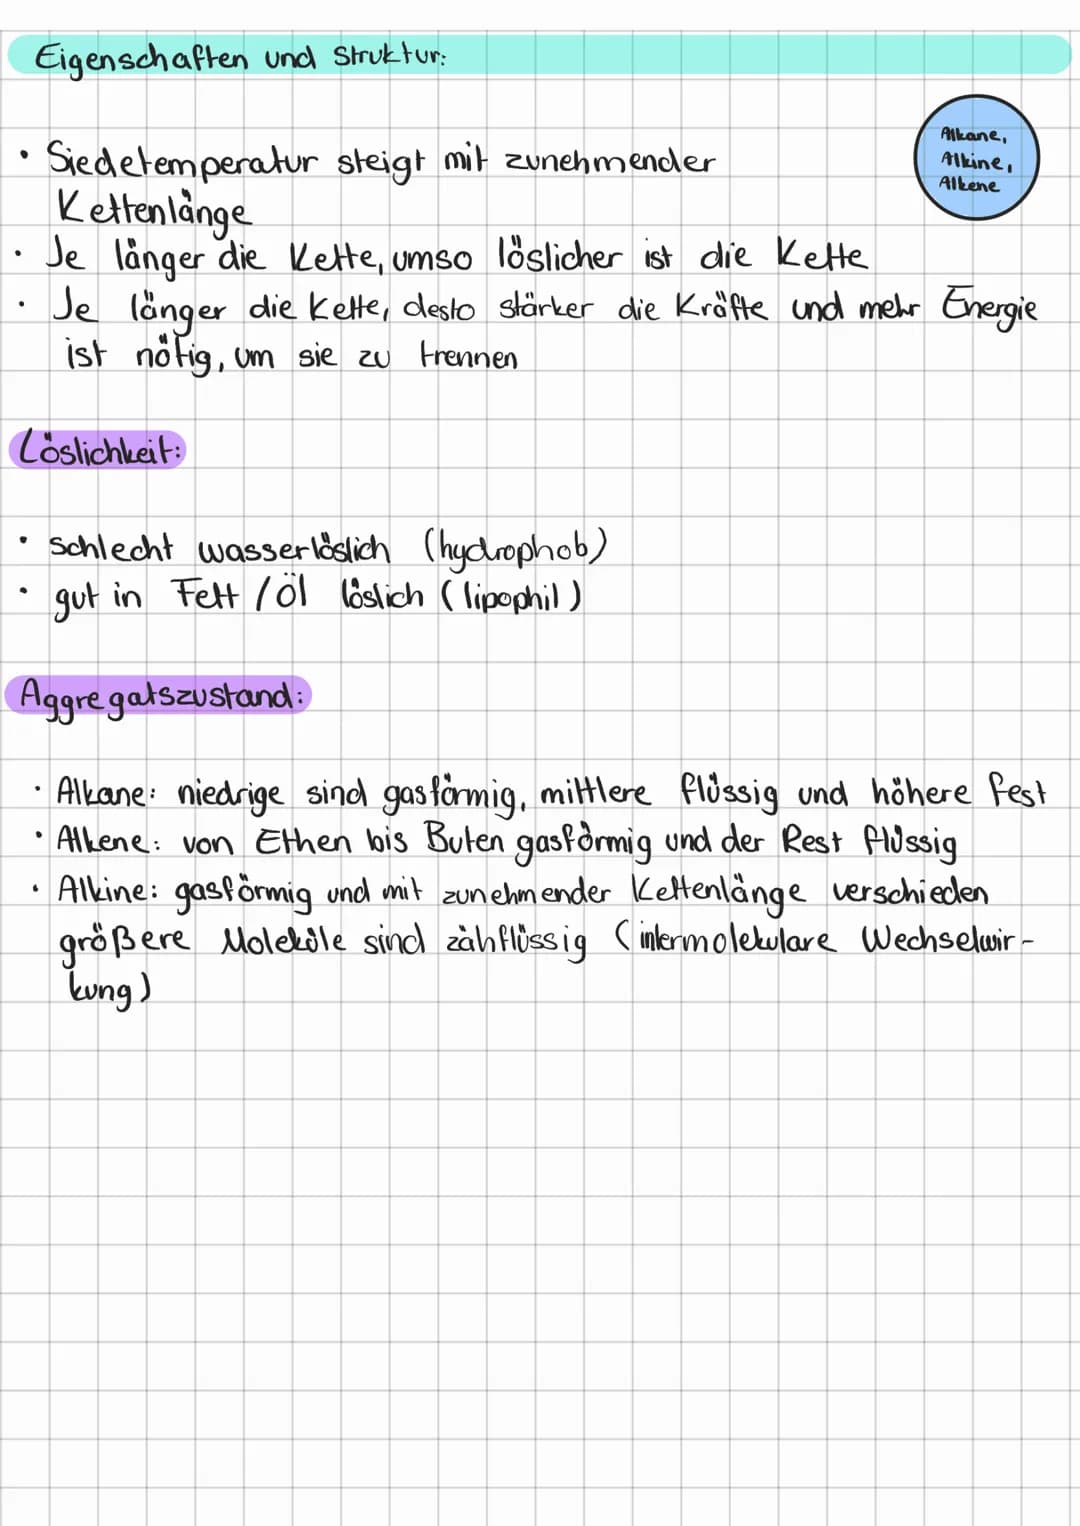 Eigenschaften und Struktur:
Alkane,
Alkine,
Alkene
• Siedetemperatur steigt mit zunehmender
Kettenlänge
• Je länger die Kette, umso löslicher ist die Kette
• Je länger die Kette, desto stärker die Kräfte und mehr Energie
ist nötig, um sie zu trennen
Löslichkeit:
• schlecht wasserlöslich (hydrophob)
• gut in Fett / Öl löslich (lipophil)
Aggregatszustand:
• Alkane: niedrige sind gasförmig, mittlere flüssig und höhere fest
• Alkene: von Ethen bis Buten gasförmig und der Rest flüssig
• Alkine: gasförmig und mit zunehmender Kettenlänge verschieden
größere Moleküle sind zähflüssig (intermolekulare Wechselwir-
kung)